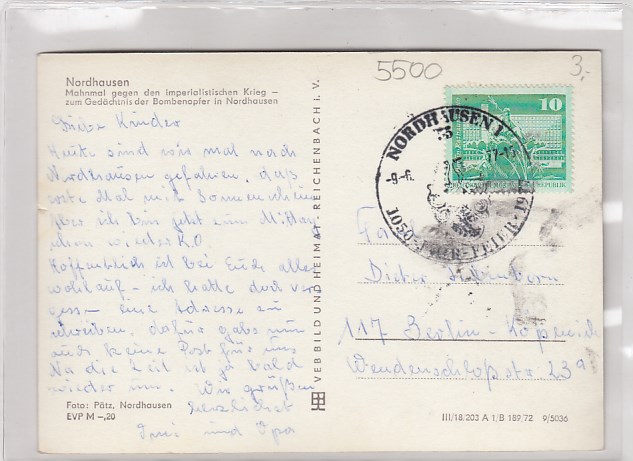 5500
3,-
Nordhausen
Mahnmal gegen den imperialistischen Krieg —
zum Gedächtnis der Bombenopfer in Nordhausen
Liebe Kinder
Heute sind wir mal nach
Nordhausen gefahren, das
erste Mal mit Sonnenschein
aber ich bin jetzt zum Mittag
schon wieder K.O.
Hoffentlich ist bei Euch alles
wohlauf - ich hatte doch ver
gess- eine Adresse zu
schreiben, dafür gabs nun
auch keine Post für uns
Na die Zeit ist ja bald
wieder um. Wir grüßen
herzlichst
und Opa
Foto: Pätz, Nordhausen
EVP M –,20
VEB BILD UND HEIMAT REICHENBACH i. V.
10
NORDHAUSEN 1
-9.-6.
77-15
1050-JAHR-FEIER
Dieter
117 Berlin - Köpenick
Wendenschloßstr 239
III/18/203 A 1/B 189/72 9/5036